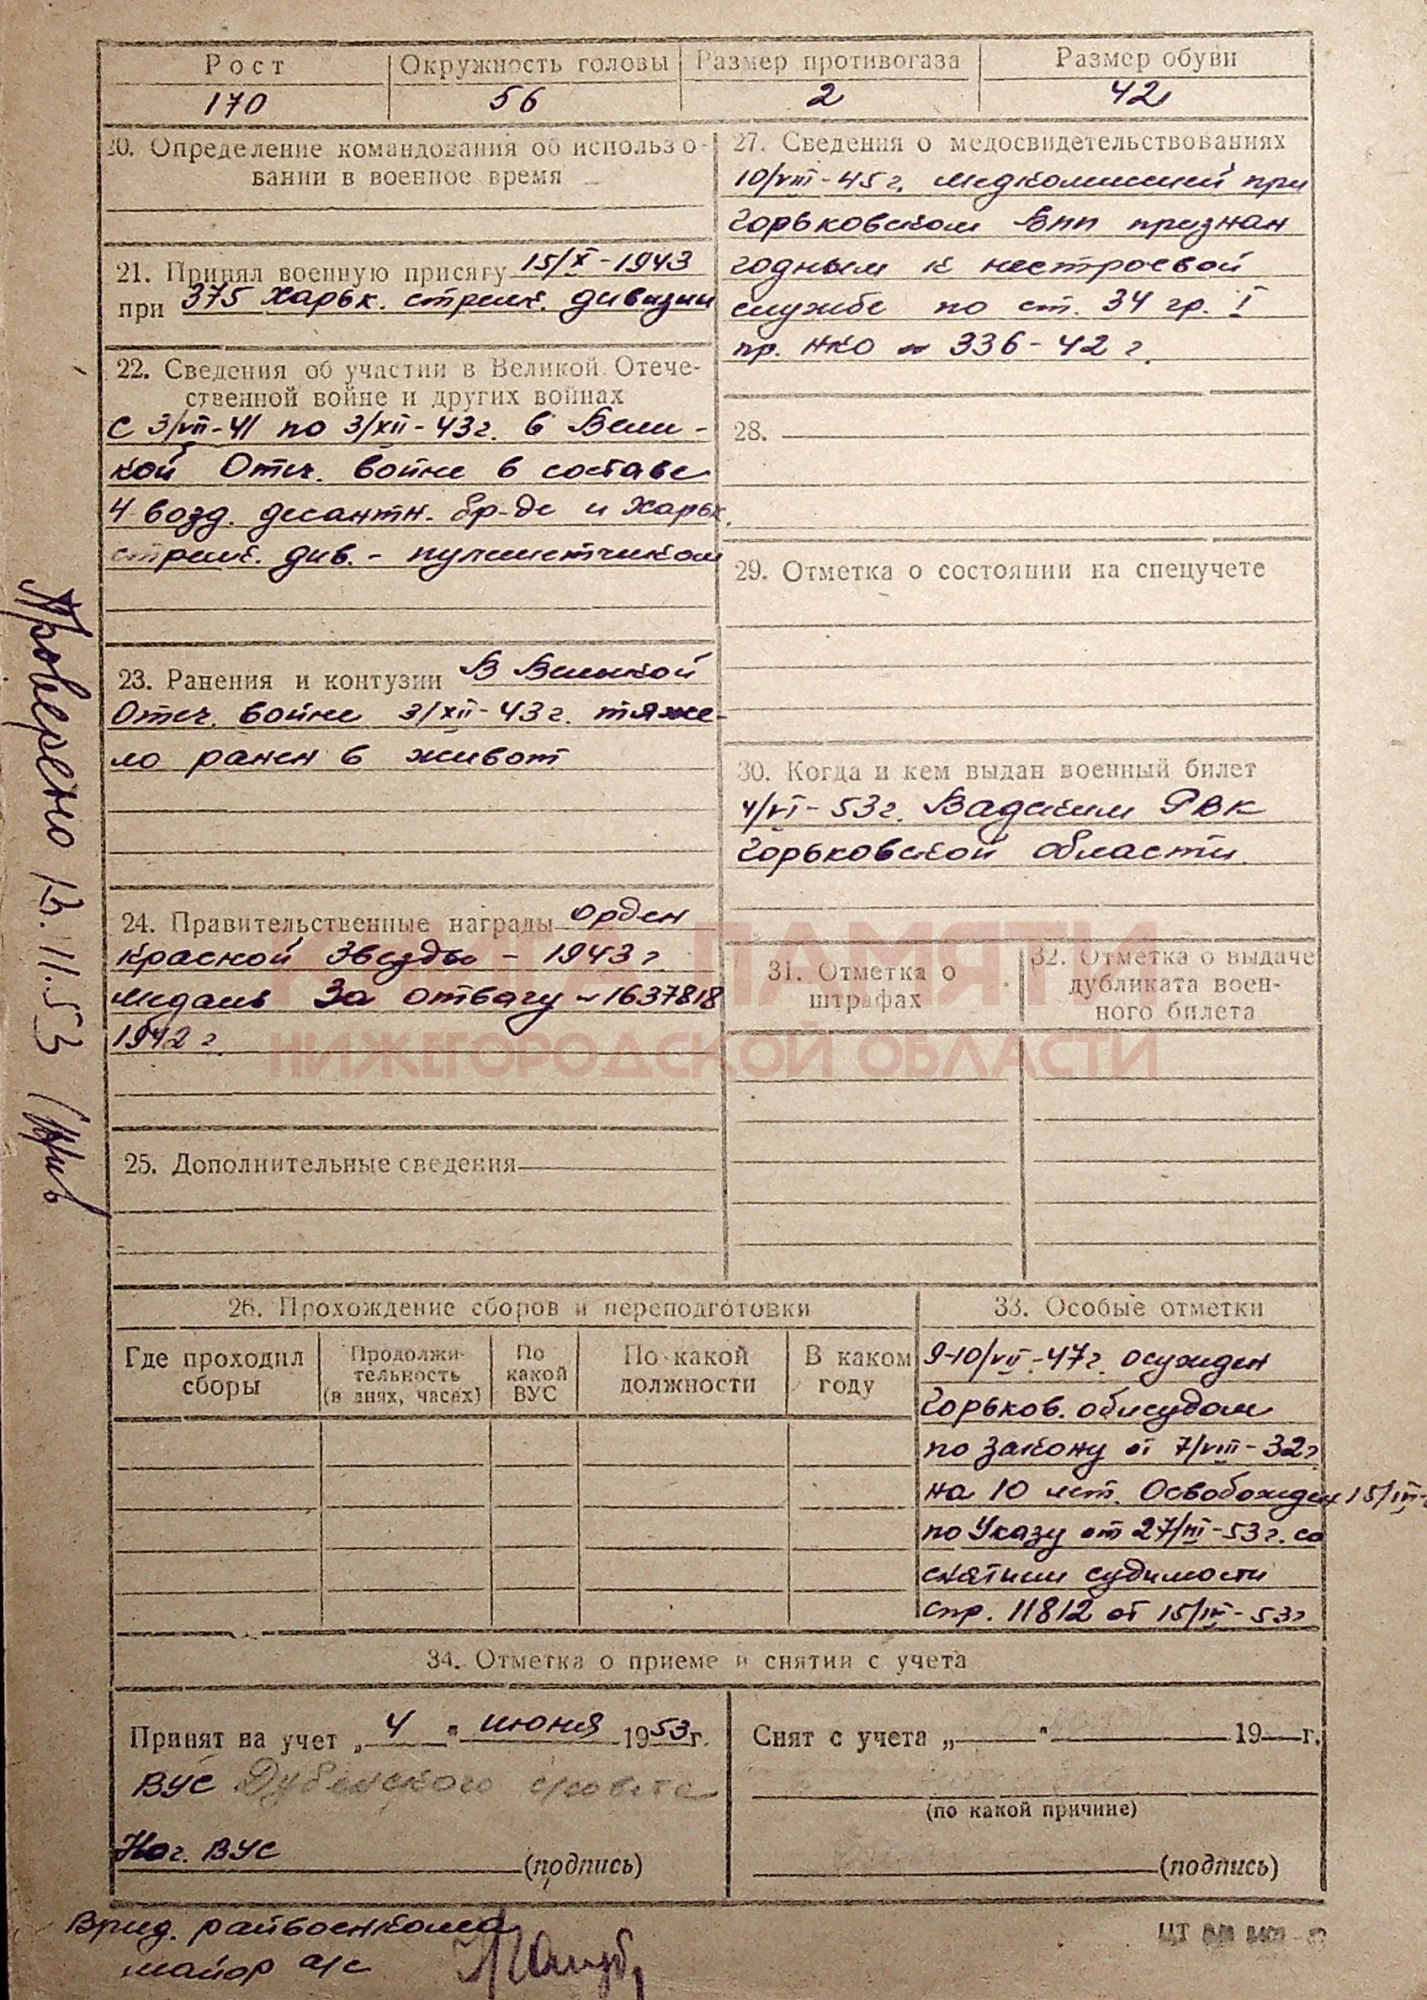 Рост
Окружность головы
Размер противогаза
Размер обуви
170
56
2
42
20. Определение командования об использо-
вании в военное время
21. Принял военную присягу 15/X-1943
при 375 Харьк. стрелк. дивизии
22. Сведения об участии в Великой Отече-
ственной войне и других войнах
с 3/VII-41 по 3/XII-43г. в Вели-
кой Отеч. войне в составе
4 возд. десантн. бр-де и Харьк.
стрелк. див. - пулеметчиком
23. Ранения и контузии В Великой
Отеч. войне 3/XII-43г. тяже-
ло ранен в живот
24. Правительственные награды орден
красной Звезды - 1943г
медаль За отвагу № 1637818
1942г.
25. Дополнительные сведения
27. Сведения о медосвидетельствованиях
10/VIII-45г. медкомиссией при
Горьковском ВПП признан
годным к нестроевой
службе по ст. 34 гр. I
пр. НКО № 336-42г.
28.
29. Отметка о состоянии на спецучете
30. Когда и кем выдан военный билет
4/VI-53г. Вадским РВК
Горьковской области.
31. Отметка о
штрафах
32. Отметка о выдаче
дубликата воен-
ного билета
КНИГА ПАМЯТИ
НИЖЕГОРОДСКОЙ ОБЛАСТИ
Проверено 13.11.53
26. Прохождение сборов и переподготовки
Где проходил
сборы
Продолжи-
тельность
(в днях, часах)
По
какой
ВУС
По какой
должности
В каком
году
33. Особые отметки
9-10/VII-47г. осужден
Горьков. облсудом
по закону от 7/VIII-32г
на 10 лет. Освобожден 15/IV-
по Указу от 27/III-53г. со
снятием судимости
спр. 11812 от 15/IV-53г
34. Отметка о приеме и снятии с учета
Принят на учет „4" июня 1953г.
ВУС Дубенского с/совета
Нач. ВУС (подпись)
Снят с учета „ " 19 г.
(по какой причине)
(подпись)
Врид. райвоенкома
майор а/с